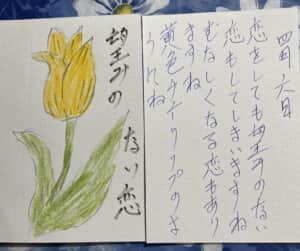 望みの
ない恋
四月六日
恋をしても望みのない
恋もしてしまいますね
むなしくなる恋もあり
ますね
黄色チューリップのよ
うにね